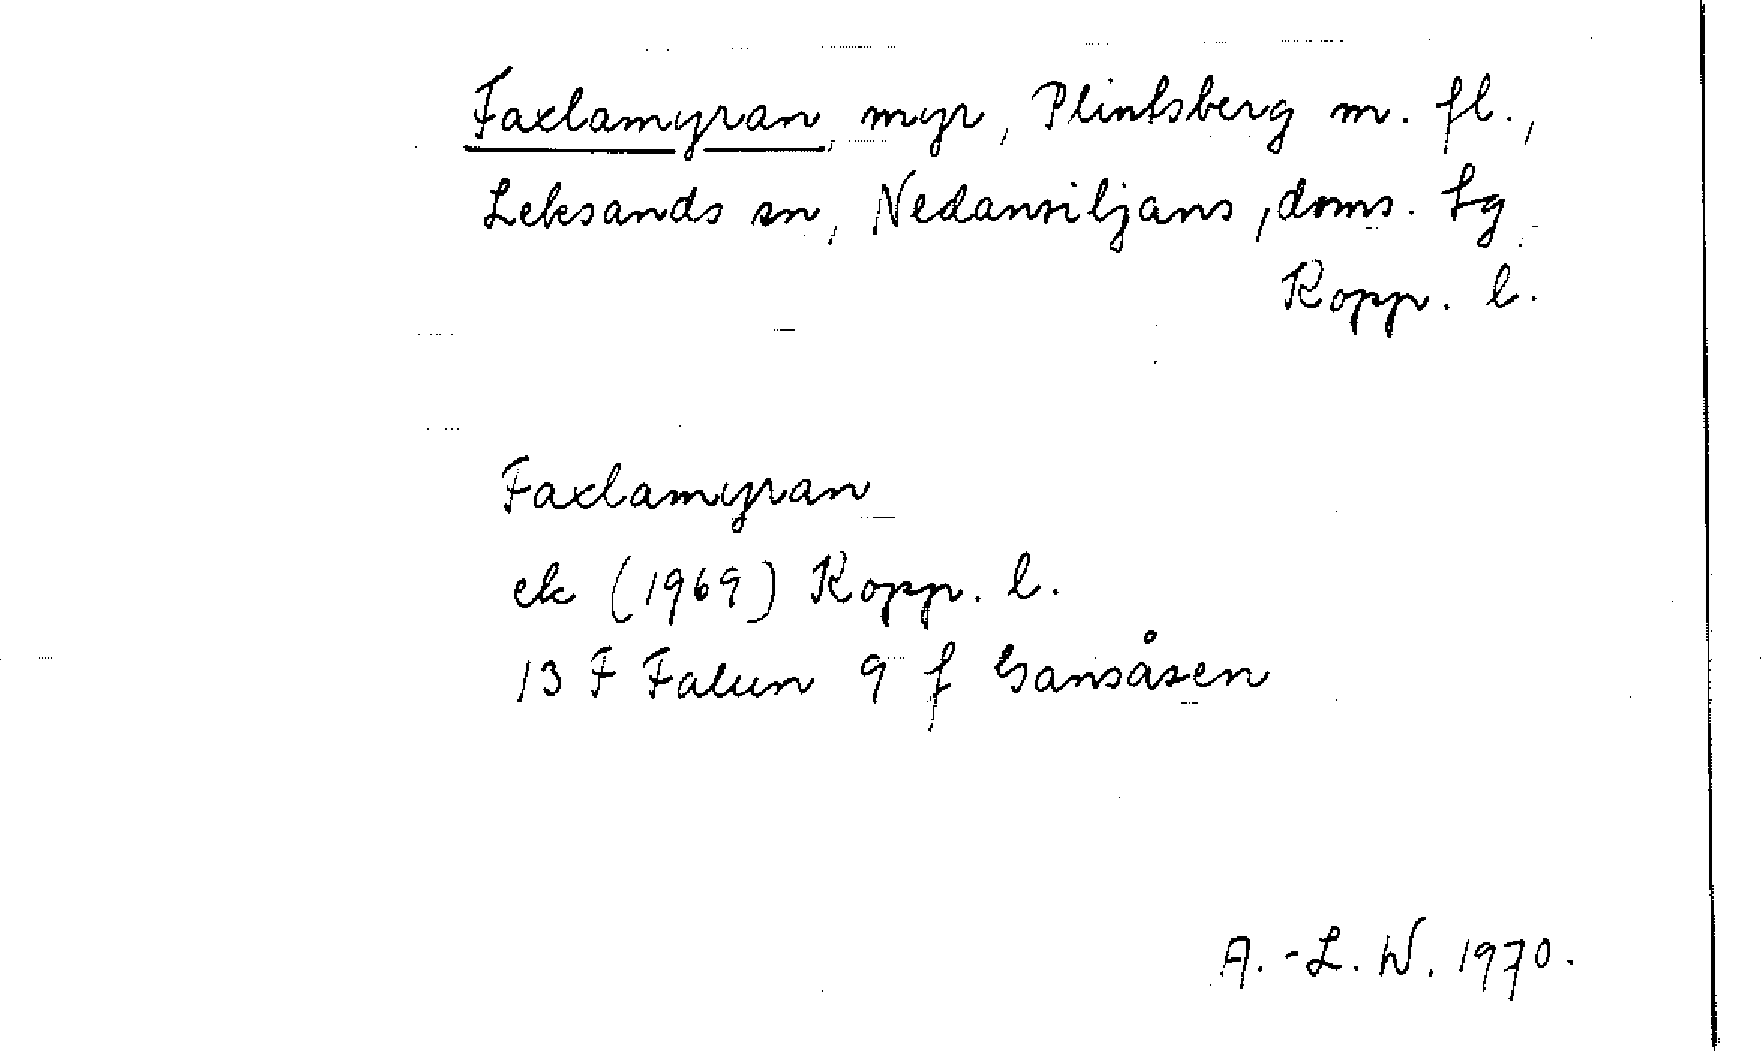 Faxlamyran, myr, Plintsberg m. fl.,
Leksands sn, Nedansiljans, doms. Lg
Kopp. l.
Faxlamyran
ek (1969) Kopp. l.
13 F Falun 9 f Gansåsen
A.-L. W. 1970.